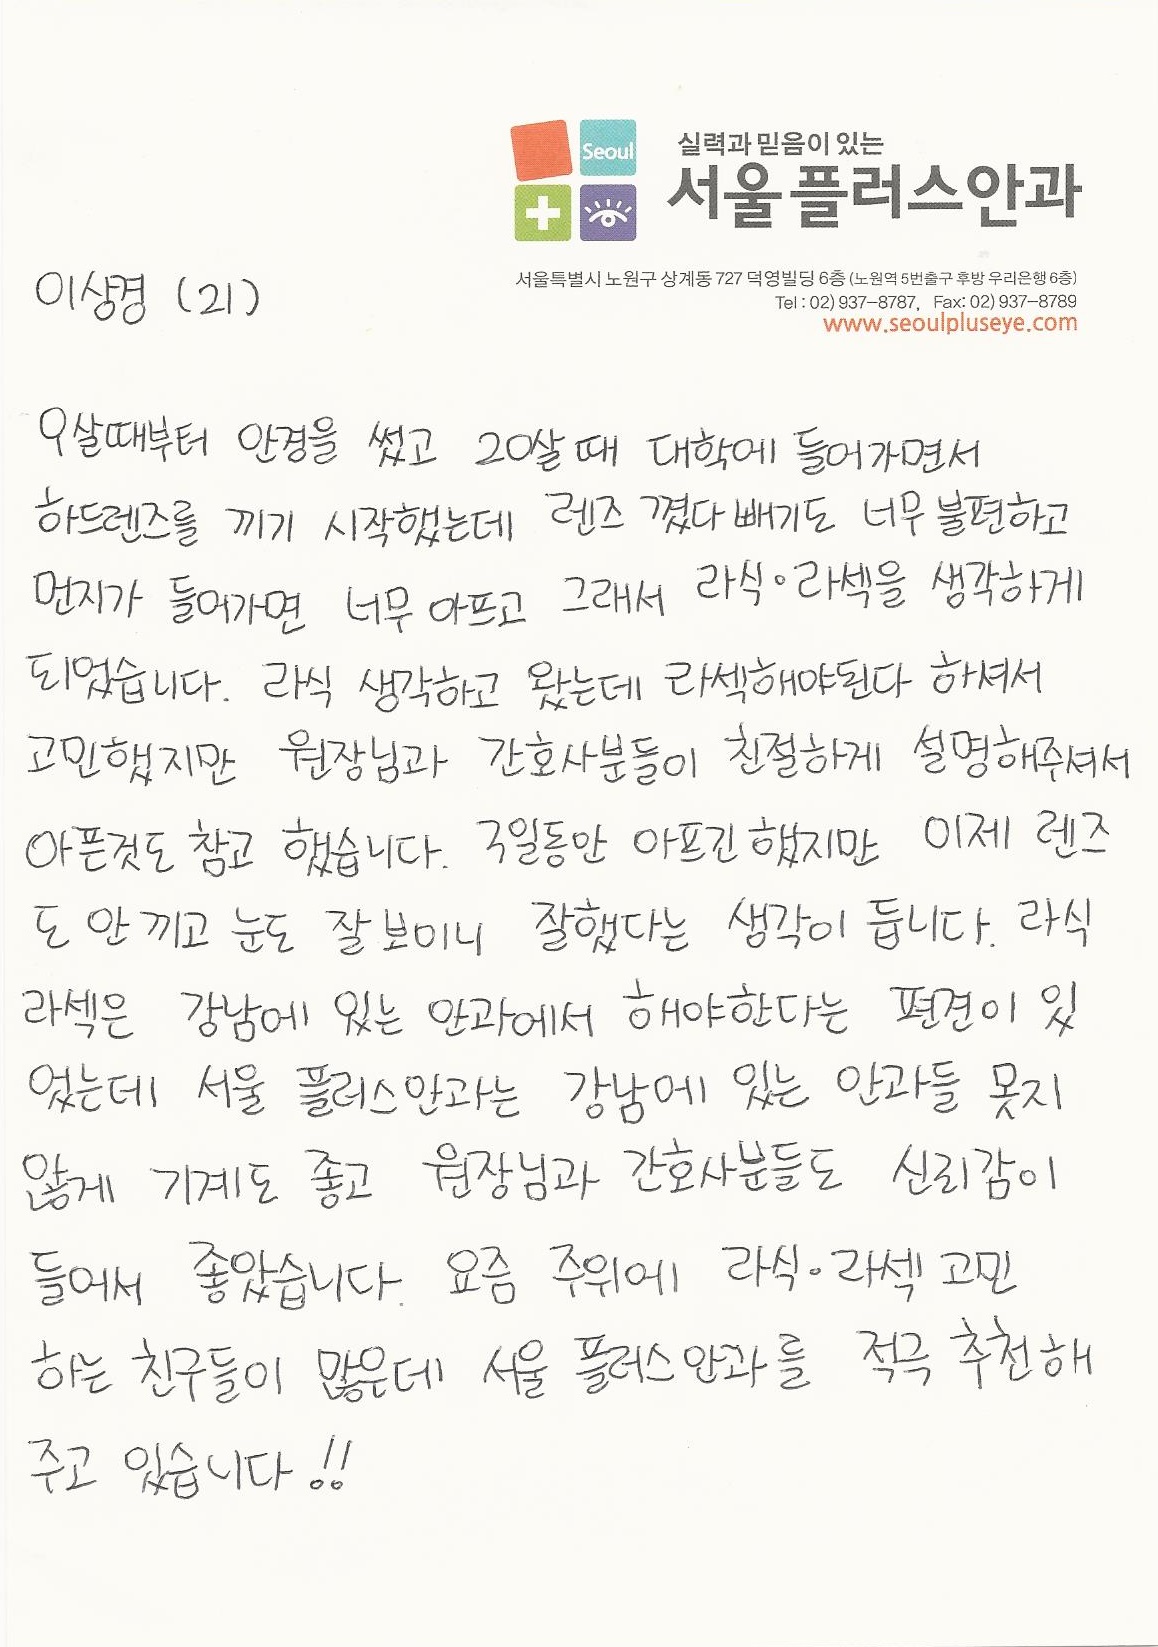 Seoul
실력과 믿음이 있는
서울플러스안과
서울특별시 노원구 상계동 727 덕영빌딩 6층 (노원역 5번출구 후방 우리은행 6층)
Tel : 02) 937-8787, Fax: 02) 937-8789
www.seoulpluseye.com
이상경 (21)
9살때부터 안경을 썼고 20살 때 대학에 들어가면서
하드렌즈를 끼기 시작했는데 렌즈 꼈다 빼기도 너무 불편하고
먼지가 들어가면 너무 아프고 그래서 라식·라섹을 생각하게
되었습니다. 라식 생각하고 왔는데 라섹해야된다 하셔서
고민했지만 원장님과 간호사분들이 친절하게 설명해주셔서
아픈것도 참고 했습니다. 아프긴 했지만 이제 렌즈
도 안 끼고 눈도 잘 보이니 잘했다는 생각이 듭니다. 라식
라섹은 강남에 있는 안과에서 해야한다는 편견이 있
었는데 서울 플러스안과는 강남에 있는 안과들 못지
않게 기계도 좋고 원장님과 간호사분들도 신뢰감이
들어서 좋았습니다. 요즘 주위에 라식·라섹 고민
하는 친구들이 많은데 서울 플러스안과를 적극 추천해
주고 있습니다!!